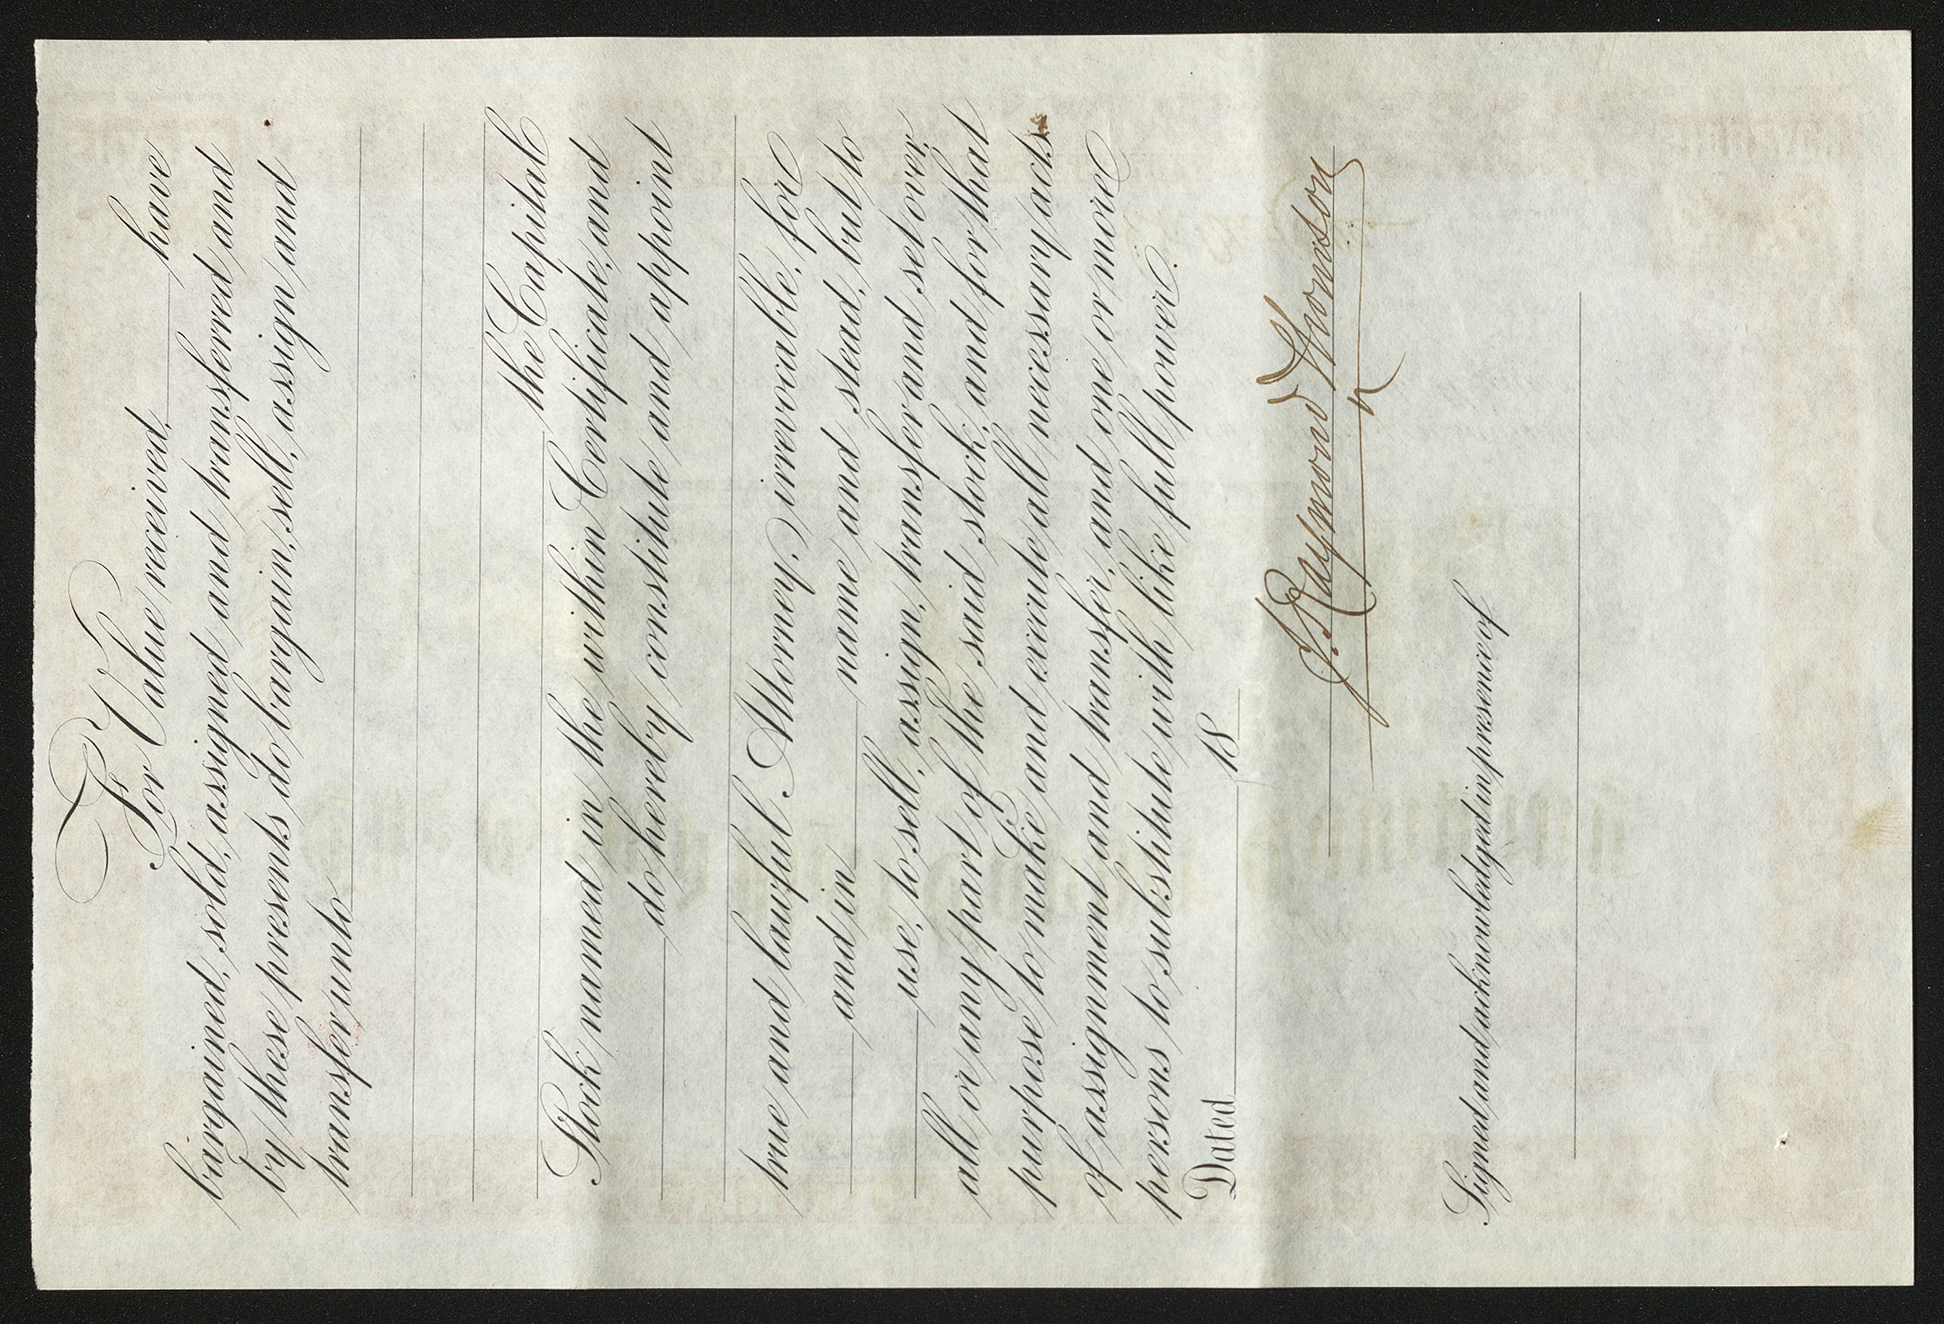 For Value received, have
bargained, sold, assigned and transferred, and
by these presents do bargain, sell, assign and
transfer unto
the Capital
Stock named in the within Certificate, and
do hereby constitute and appoint
true and lawful Attorney, irrevocable, for
and in name and stead, but to
use, to sell, assign, transfer and set over,
all or any part of the said stock, and for that
purpose to make and execute all necessary acts
of assignment and transfer, and one or more
persons to substitute with like full power.
Dated 18
J. Raymond Thomson
Signed and acknowledged in presence of